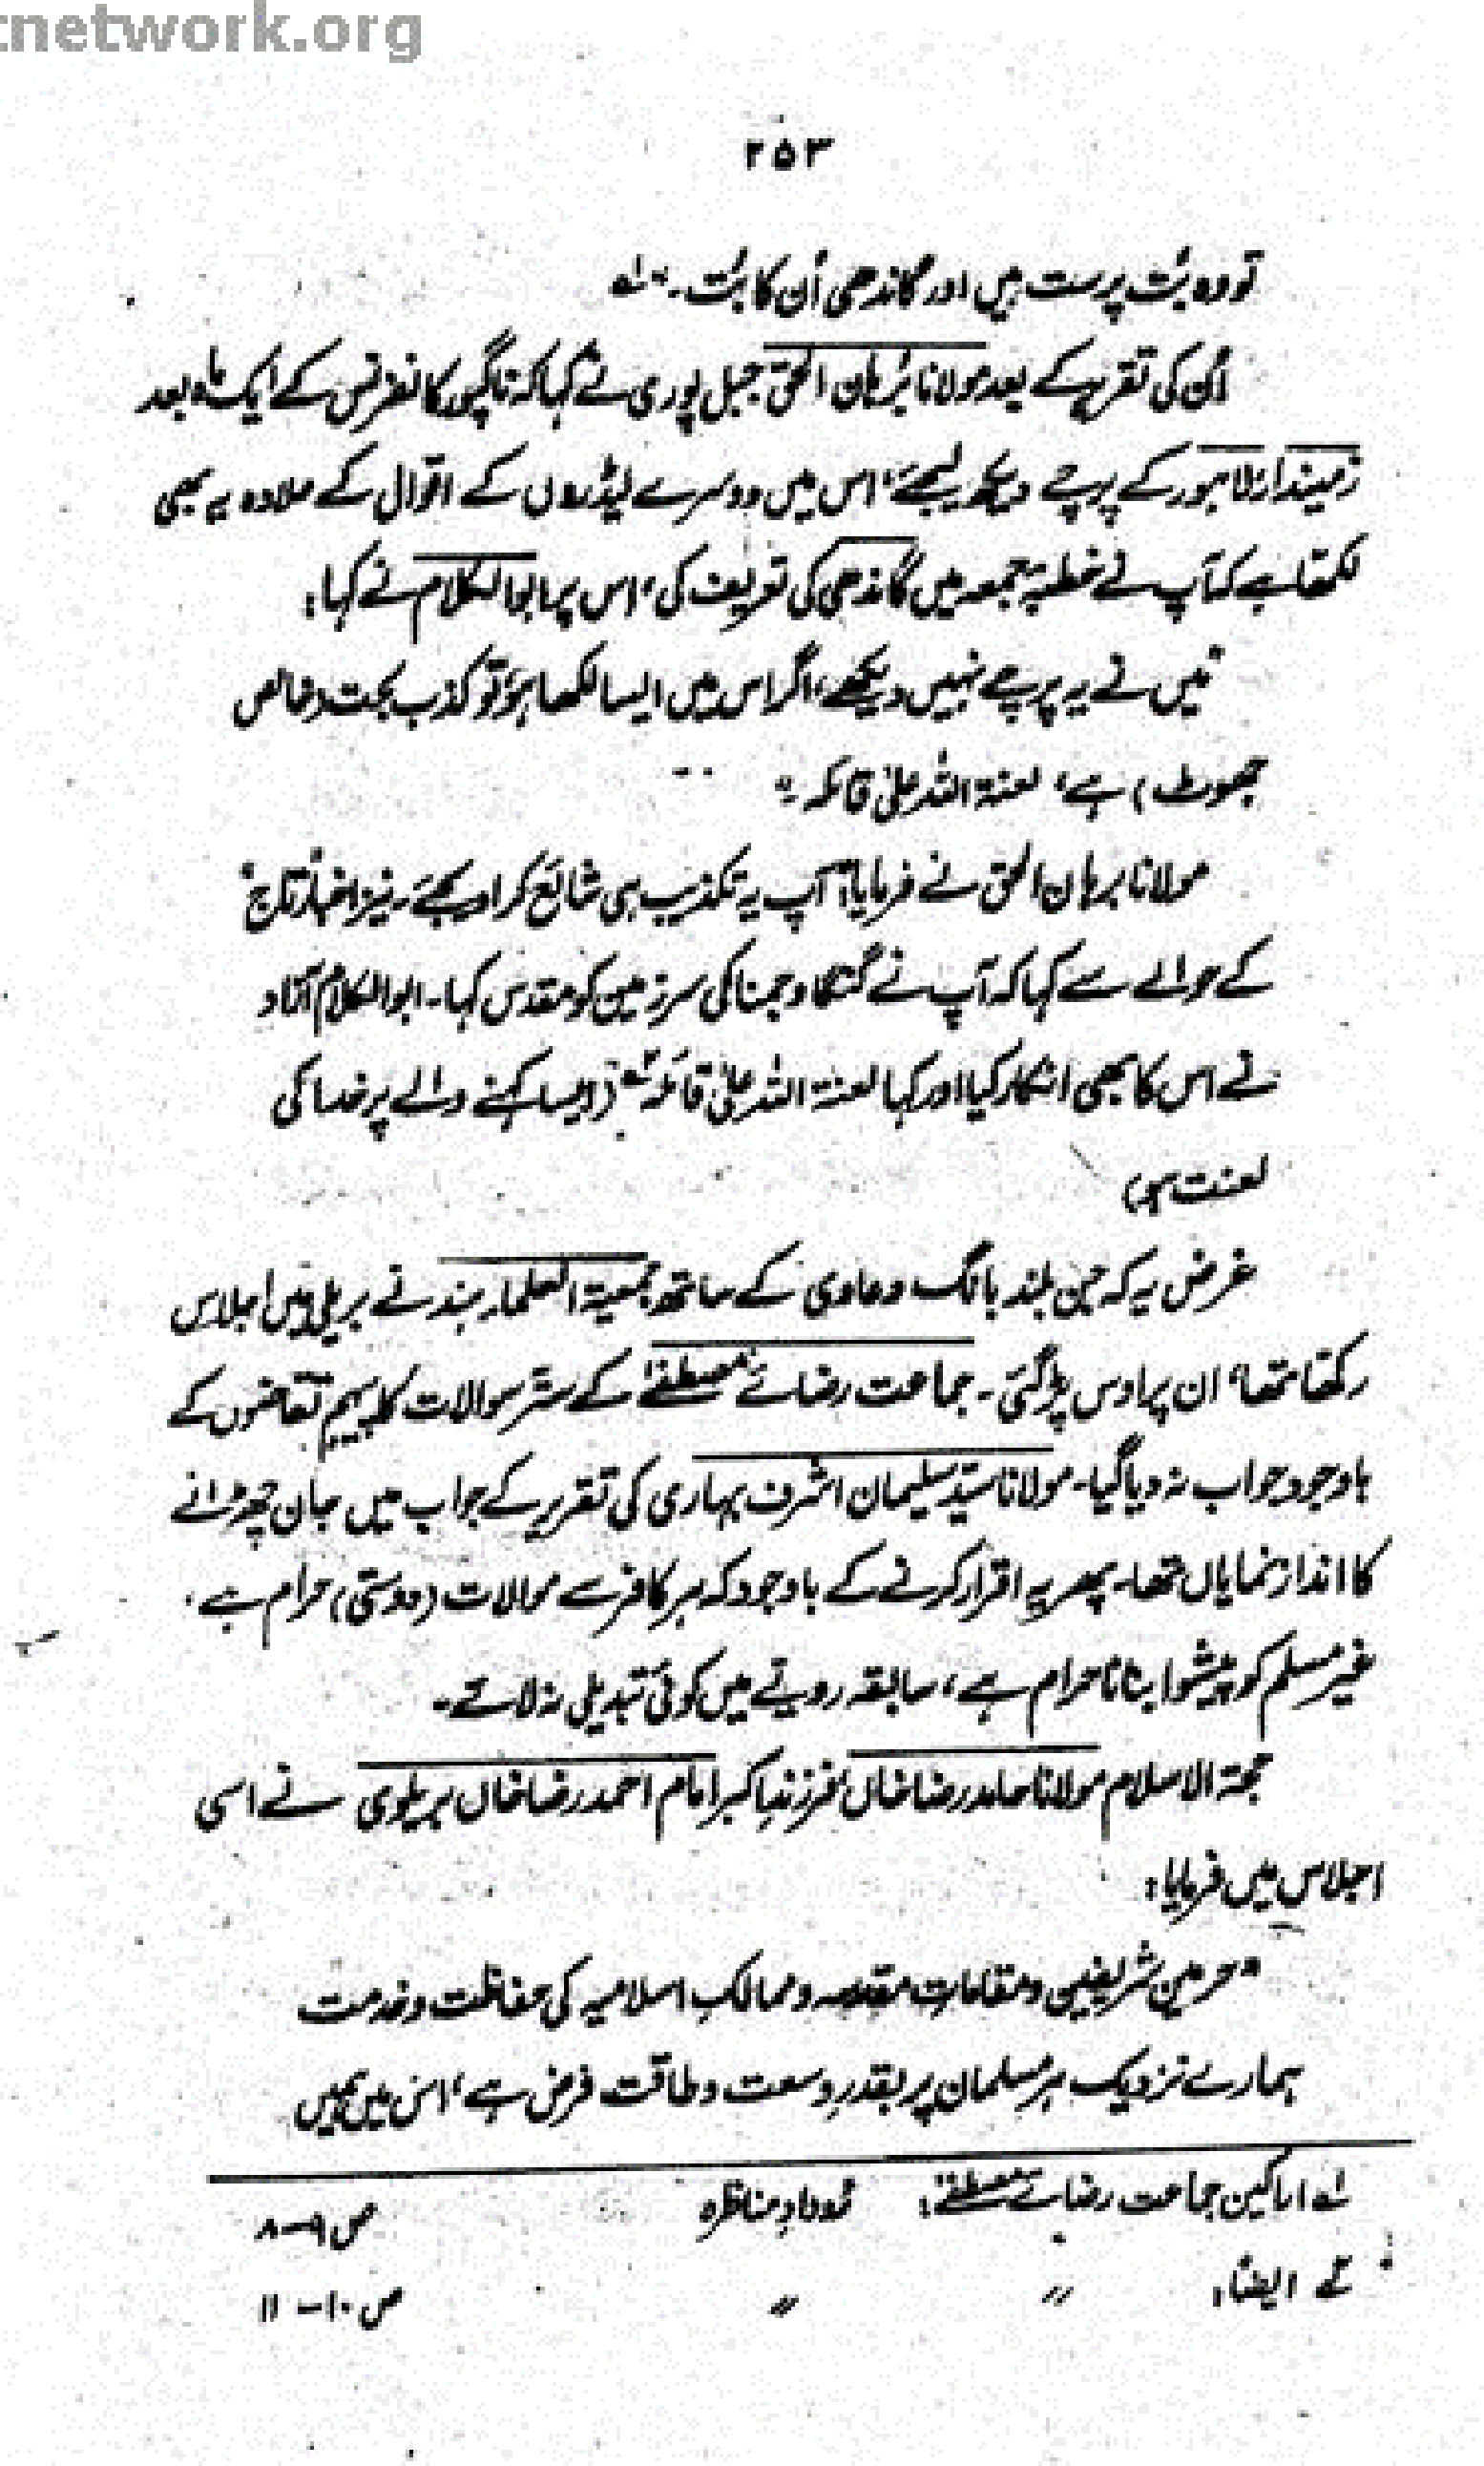 tnetwork.org
۲۵۳
تو وہ بُت پرست ہیں اور گاندھی اُن کا بُت۔" لہ
اُن کی تقریر کے بعد مولانا برُہان الحق جبل پوری نے کہا کہ ناگپور کانفرنس کے ایک ماہ بعد
زمیندار لاہور کے پرچے دیکھ لیجئے، اس میں دوسرے لیڈروں کے اقوال کے علاوہ یہ بھی
لکھتا ہے کہ آپ نے خطبۂ جمعہ میں گاندھی کی تعریف کی، اس پر ابوالکلام نے کہا:
"میں نے یہ پرچے نہیں دیکھے، اگر اس میں ایسا لکھا ہو، تو کذب بحت (خالص
جھوٹ) ہے، لعنۃ اللہ علیٰ قائلہ۔"
مولانا برہان الحق نے فرمایا: آپ یہ تکذیب ہی شائع کرا دیجئے۔ نیز اخبار "تاج"
کے حوالے سے کہا کہ آپ نے گنگا و جمنا کی سرزمین کو مقدس کہا۔ ابوالکلام آزاد
نے اس کا بھی انکار کیا اور کہا لعنۃ اللہ علیٰ قائلہ ؎۲ (ایسا کہنے والے پر خدا کی
لعنت ہو)
غرض یہ کہ جن بلند بانگ دعاوی کے ساتھ جمعیۃ العلماء ہند نے بریلی میں اجلاس
رکھا تھا، ان پر اوس پڑ گئی۔ جماعت رضائے مصطفےٰ کے ستر سوالات کا پیہم تقاضوں کے
باوجود جواب نہ دیا گیا۔ مولانا سیّد سلیمان اشرف بہاری کی تقریر کے جواب میں جان چھڑانے
کا انداز نمایاں تھا۔ پھر یہ اقرار کرنے کے باوجود کہ ہر کافر سے موالات (دوستی) حرام ہے،
غیر مسلم کو پیشوا بنانا حرام ہے، سابقہ رویے میں کوئی تبدیلی نہ لائے۔
حجۃ الاسلام مولانا حامد رضا خاں فرزندِ اکبر امام احمد رضا خاں بریلوی نے اسی
اجلاس میں فرمایا:
"حرمین شریفین و مقاماتِ مقدسہ و ممالکِ اسلامیہ کی حفاظت و خدمت
ہمارے نزدیک ہر مسلمان پر بقدرِ وسعت و طاقت فرض ہے، اس میں ہمیں
لہ اراکین جماعت رضائے مصطفےٰ: رُودادِ مناظرہ ص ۹-۸
؎۲ ایضاً: " " ص ۱۰-۱۱